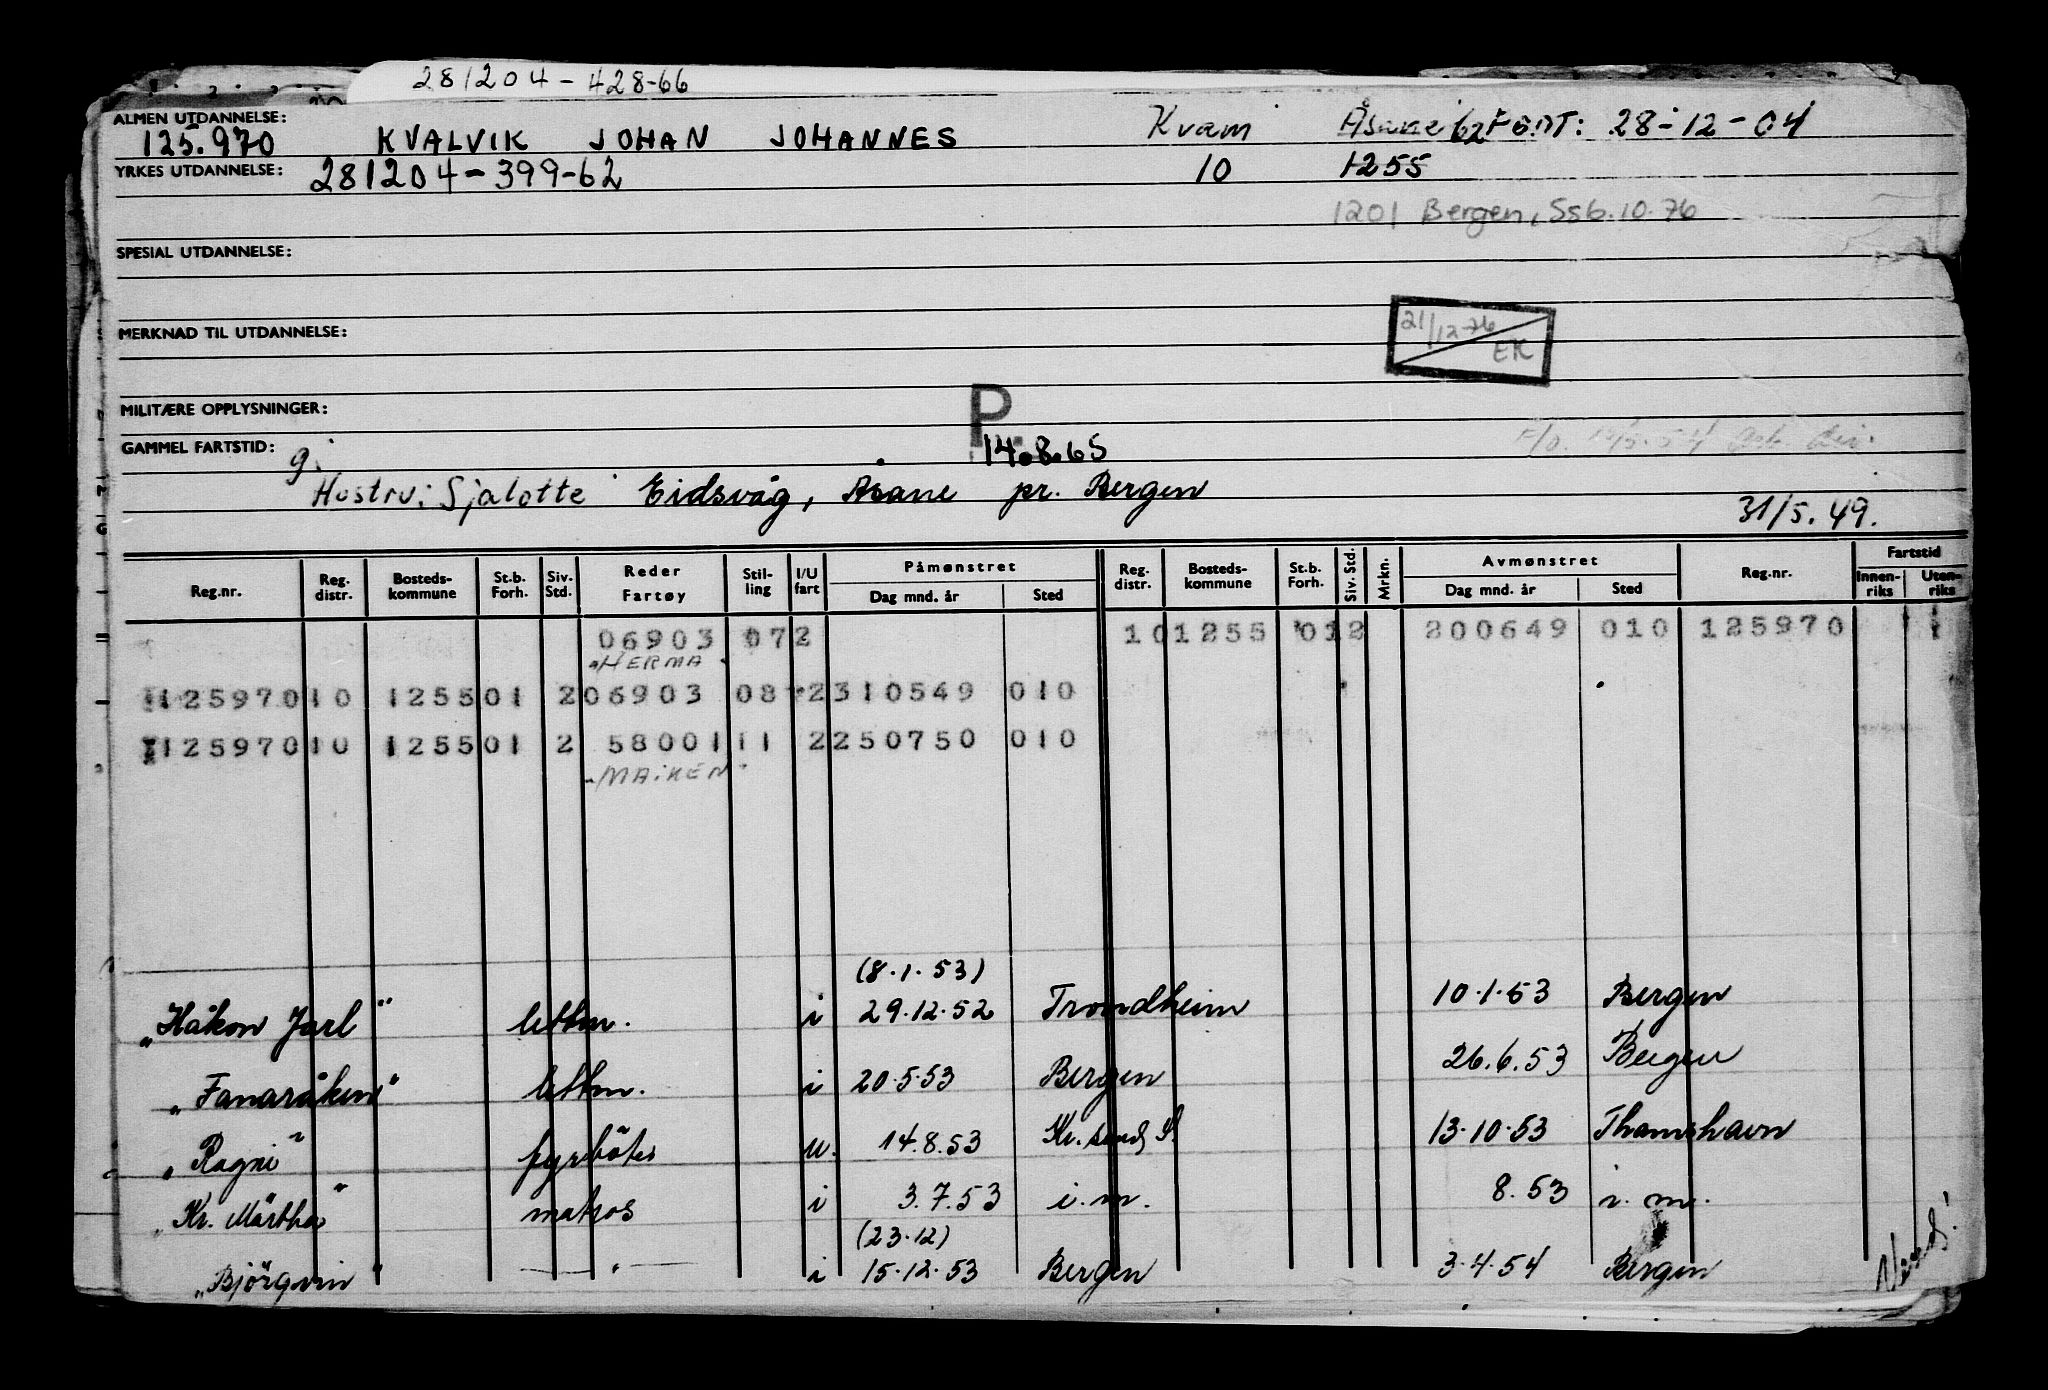 281204-428-66
ALMEN UTDANNELSE:
125.970 KVALVIK JOHAN JOHANNES Kvam Åsane 62 FØDT: 28-12-04
YRKES UTDANNELSE: 281204-399-62 10 1255
1201 Bergen, Ss 6.10.76
SPESIAL UTDANNELSE:
21/12-76 EK
MERKNAD TIL UTDANNELSE:
P.
MILITÆRE OPPLYSNINGER:
GAMMEL FARTSTID: 14.8.65
g.
Hustru: Sjalotte Eidsvåg, Åsane pr. Bergen 31/5.49.
Reg.nr. Reg. distr. Bosteds-kommune St.b. Forh. Siv. Std. Reder Fartøy Stil-ling I/U fart Påmønstret Dag mnd. år Sted Reg. distr. Bosteds-kommune St.b. Forh. Siv. Std. Mrkn. Avmønstret Dag mnd. år Sted Reg.nr. Fartstid Innen-riks Uten-riks
06903 072 10 1255 01 2 200649 010 125970
"HERMA"
125970 10 1255 01 2 06903 08 2 310549 010
125970 10 1255 01 2 58001 11 2 250750 010
"MAIKEN"
(8.1.53)
"Håkon Jarl" lettm. i 29.12.52 Trondheim 10.1.53 Bergen
"Fanaråken" lettm. i 20.5.53 Bergen 26.6.53 Bergen
"Ragni" fyrböter u. 14.8.53 Kr.sand S. 13.10.53 Thamshavn
"Kr. Märtha" matros i 3.7.53 i.m. 8.53 i.m.
(23.12)
"Björgvin" — " — i 15.12.53 Bergen 3.4.54 Bergen